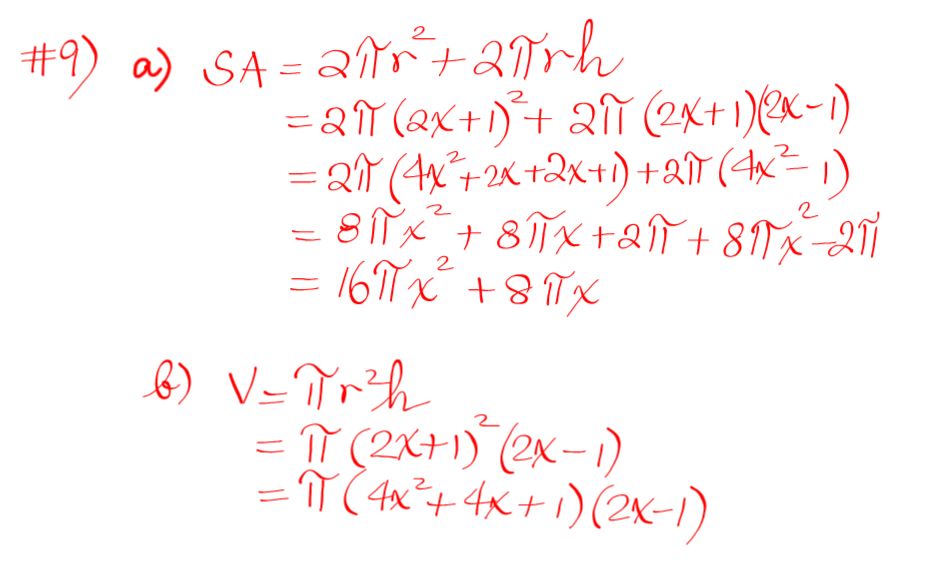 #9) a) SA = 2πr² + 2πrh
= 2π(2x+1)² + 2π(2x+1)(2x-1)
= 2π(4x²+2x+2x+1)+2π(4x²-1)
= 8πx² + 8πx+2π+8πx²-2π
= 16πx² + 8πx
b) V = πr²h
= π(2x+1)²(2x-1)
= π(4x²+4x+1)(2x-1)